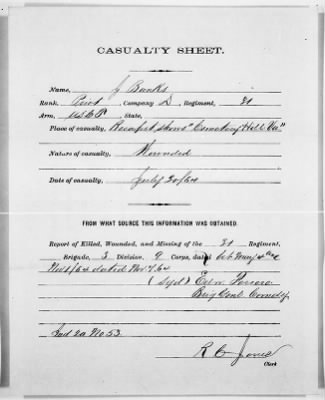 CASUALTY SHEET.
Name, J Banks
Rank, Pvt, Company D, Regiment, 31
Arm, U.S.C.T., State,
Place of casualty, "Cemetery Hill Va"
Nature of casualty, Wounded
Date of casualty, July 30/64
FROM WHAT SOURCE THIS INFORMATION WAS OBTAINED.
Report of Killed, Wounded, and Missing of the 31 Regiment,
Brigade, 3 Division, 9 Corps, dated
Nov 1/64 dated Nov 7, 64
(syd) Edw. Ferrero
Brig Genl Comd'g
Ind 2a No 53
R C Jones
Clerk